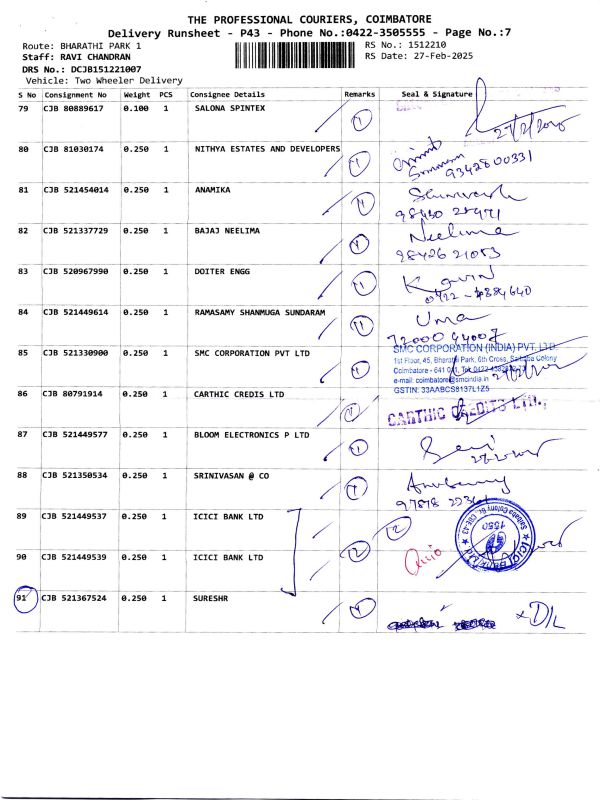 THE PROFESSIONAL COURIERS, COIMBATORE
Delivery Runsheet - P43 - Phone No.:0422-3505555 - Page No.:7
Route: BHARATHI PARK 1 RS No.: 1512210
Staff: RAVI CHANDRAN RS Date: 27-Feb-2025
DRS No.: DCJB151221007
Vehicle: Two Wheeler Delivery
S No Consignment No Weight PCS Consignee Details Remarks Seal & Signature
79 CJB 80889617 0.100 1 SALONA SPINTEX 1 27/2/2025
80 CJB 81030174 0.250 1 NITHYA ESTATES AND DEVELOPERS 1
9342800331
81 CJB 521454014 0.250 1 ANAMIKA 1
82 CJB 521337729 0.250 1 BAJAJ NEELIMA 1 Neelima
98426 21053
83 CJB 520967990 0.250 1 DOITER ENGG 1 Kavin
84 CJB 521449614 0.250 1 RAMASAMY SHANMUGA SUNDARAM 1 Uma
72000 94007
85 CJB 521330900 0.250 1 SMC CORPORATION PVT LTD 1 SMC CORPORATION (INDIA) PVT. LTD.
1st Floor, 45, Bharathi Park, 6th Cross, Saibaba Colony
Coimbatore - 641 011, Tel: 0422
e-mail: coimbatore@smcindia.in
GSTIN: 33AABCS8137L1Z5
86 CJB 80791914 0.250 1 CARTHIC CREDIS LTD 1 CARTHIC CREDITS LTD.,
87 CJB 521449577 0.250 1 BLOOM ELECTRONICS P LTD 1
88 CJB 521350534 0.250 1 SRINIVASAN @ CO 1
89 CJB 521449537 0.250 1 ICICI BANK LTD 2
90 CJB 521449539 0.250 1 ICICI BANK LTD 2 ICICI Bank Ltd Saibaba Colony Br. CBE-43 1550
91 CJB 521367524 0.250 1 SURESHR 1 x D/L